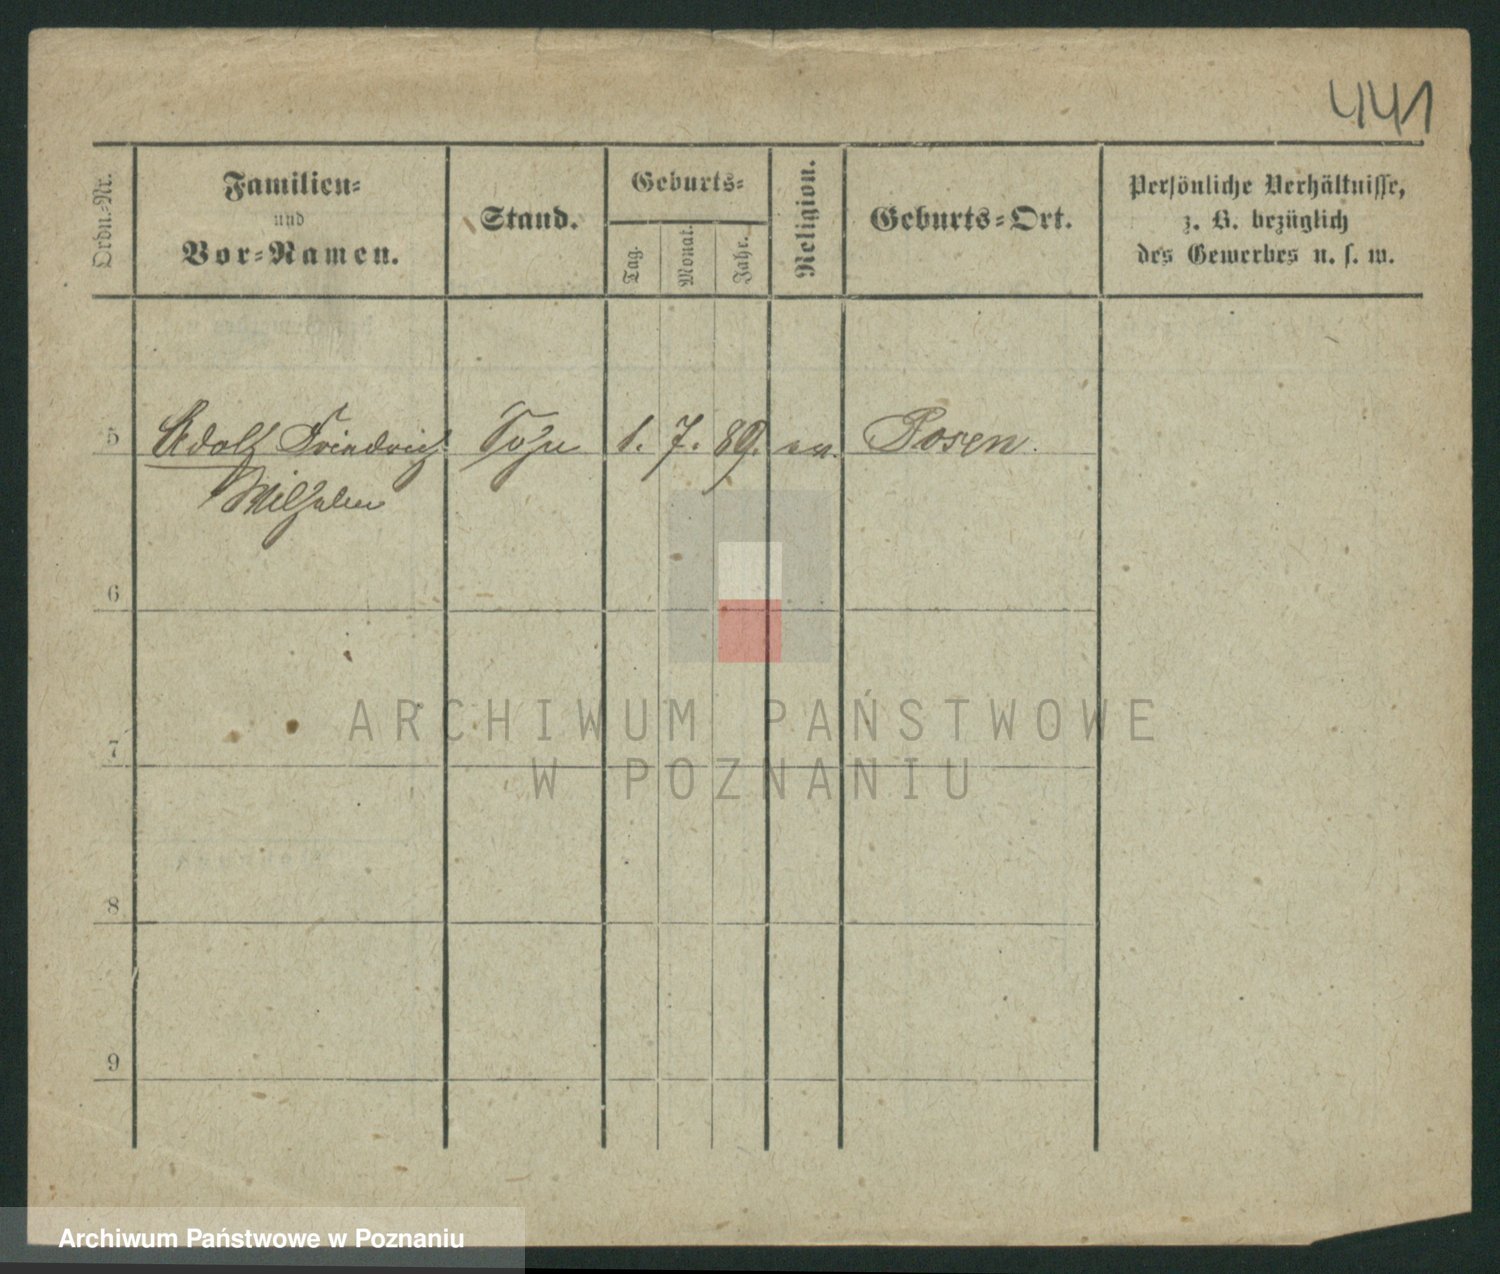 441
Ordn.-Nr.
Familien-
und
Vor-Namen.
Stand.
Geburts-
Tag.
Monat.
Jahr.
Religion.
Geburts-Ort.
Persönliche Verhältnisse,
z. B. bezüglich
des Gewerbes u. s. w.
5 Adolf Friedrich Sohn 1. 7. 89. ev. Posen.
Wilhelm
6
7
8
9
ARCHIWUM PAŃSTWOWE
W POZNANIU
Archiwum Państwowe w Poznaniu